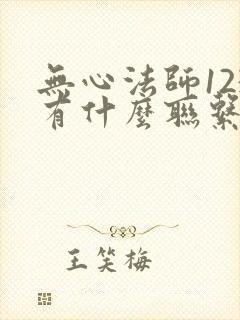 無心法師12
有什麼聯繫
王笑梅